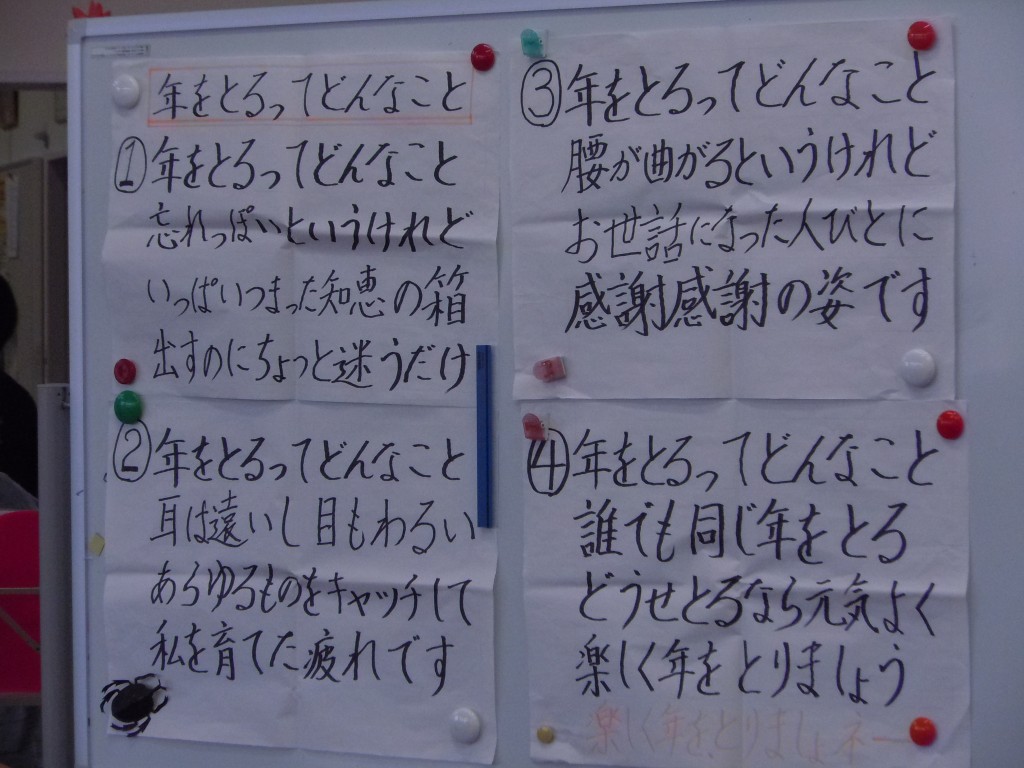 年をとるってどんなこと
①年をとるってどんなこと
忘れっぽいというけれど
いっぱいつまった知恵の箱
出すのにちょっと迷うだけ
②年をとるってどんなこと
耳は遠いし目もわるい
あらゆるものをキャッチして
私を育てた疲れです
③年をとるってどんなこと
腰が曲がるというけれど
お世話になった人びとに
感謝感謝の姿です
④年をとるってどんなこと
誰でも同じ年をとる
どうせとるなら元気よく
楽しく年をとりましょう
楽しく年をとりましょネー